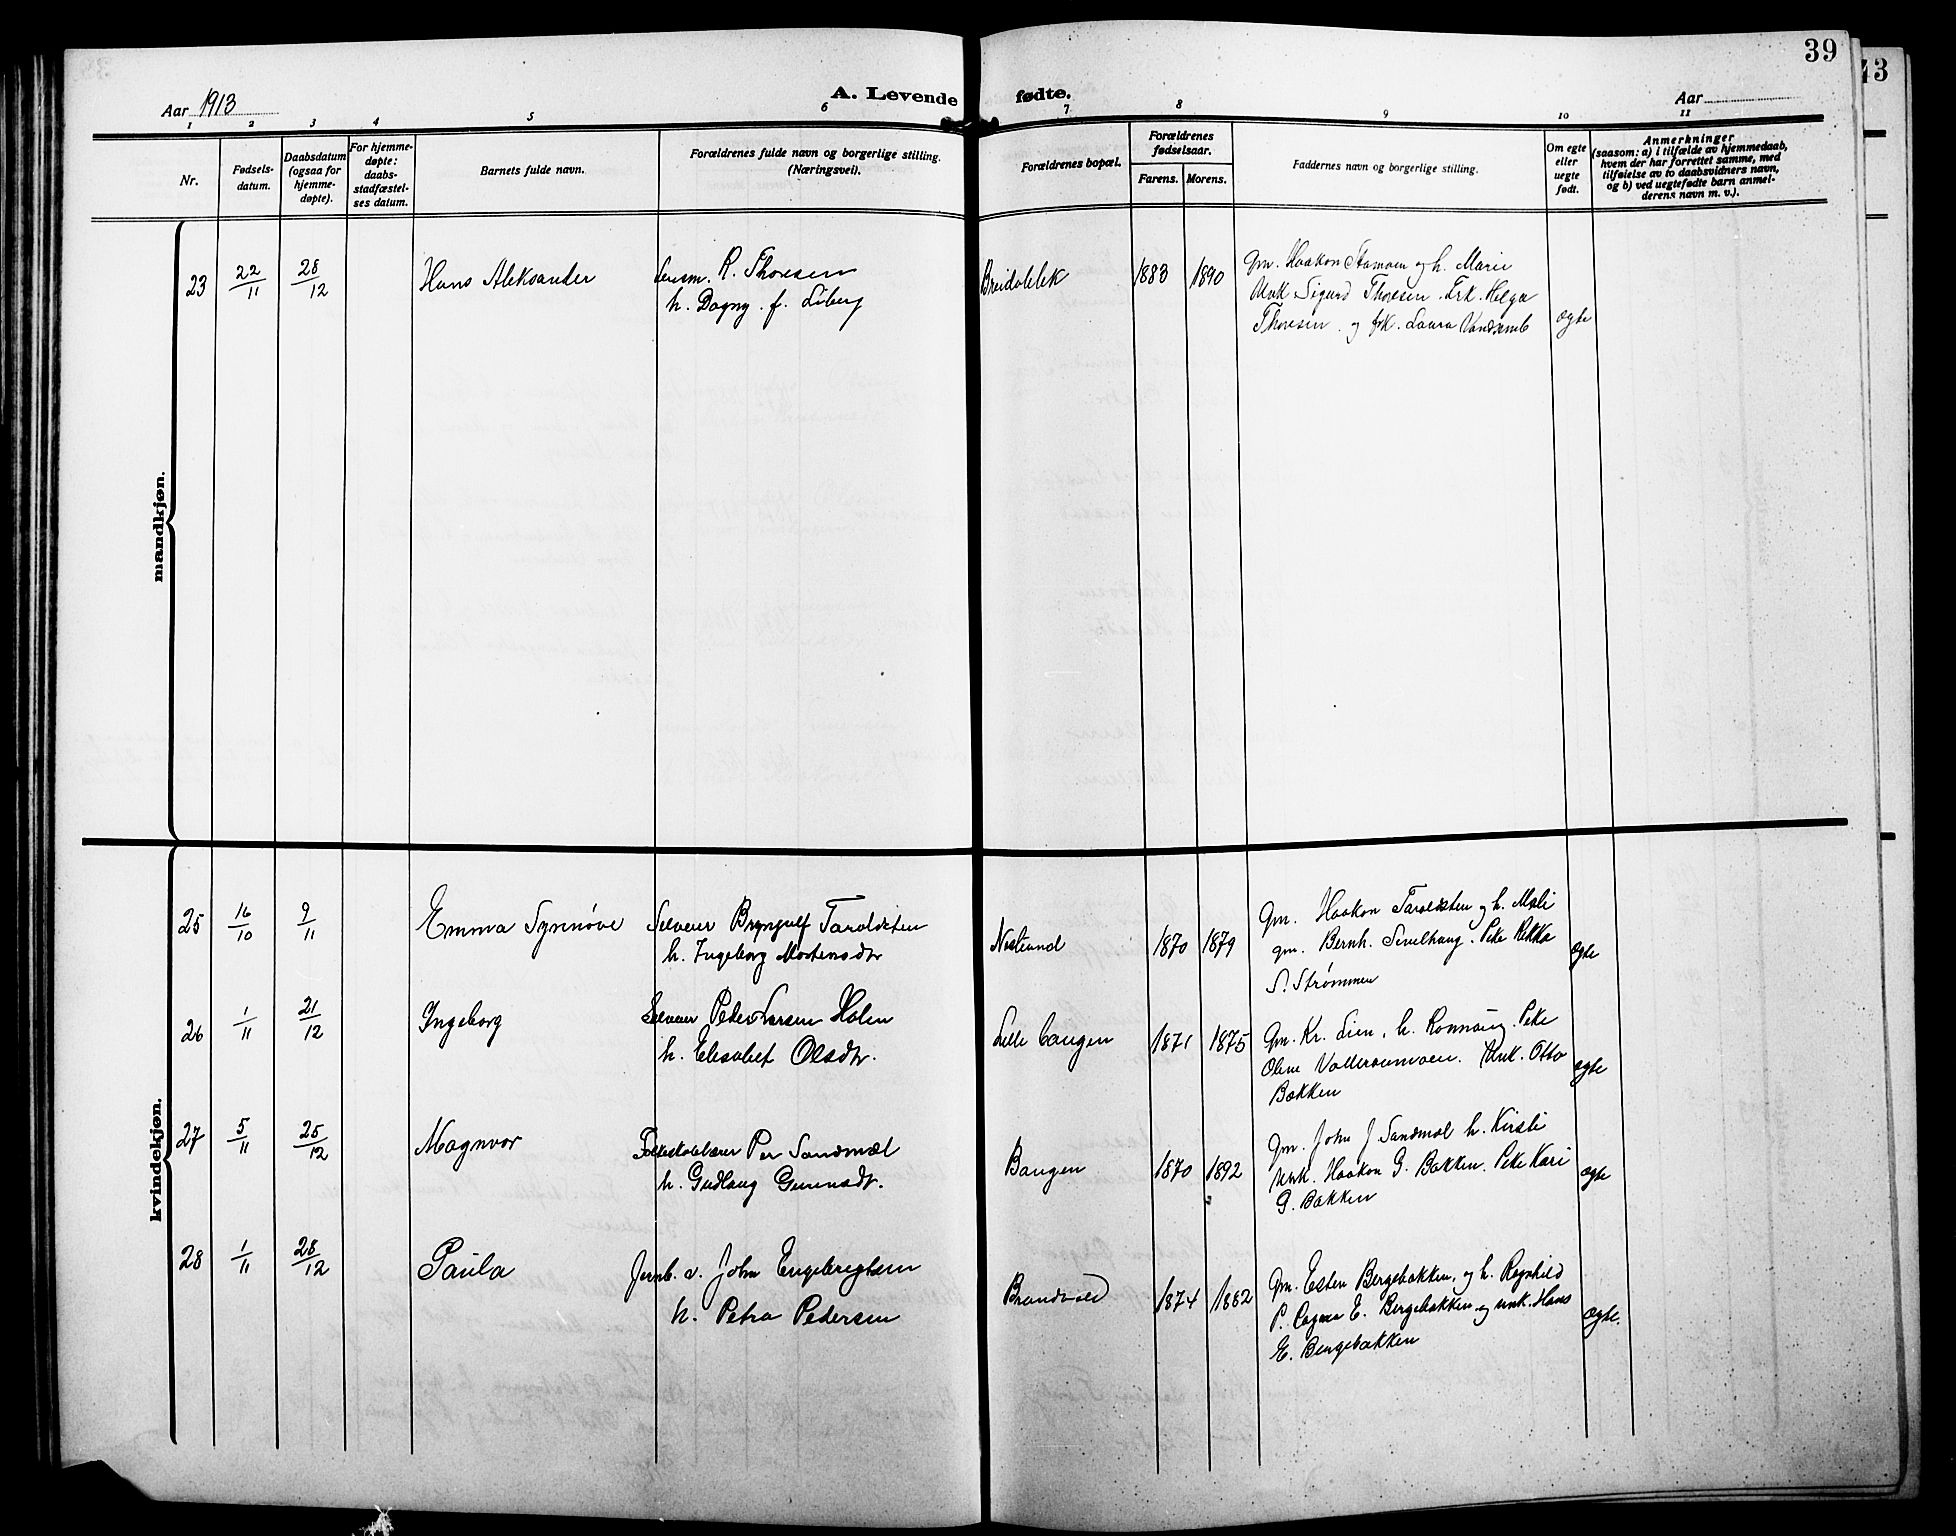 39
43
Aar 1913
A. Levende fødte.
Aar
1 2 3 4 5 6 7 8 9 10 11
Nr.
Fødsels-
datum.
Daabsdatum
(ogsaa for
hjemme-
døpte).
For hjemme-
døpte:
daabs-
stadfæstel-
ses datum.
Barnets fulde navn.
Forældrenes fulde navn og borgerlige stilling.
(Næringsvei).
Forældrenes bopæl.
Forældrenes
fødselsaar.
Farens. Morens.
Faddernes navn og borgerlige stilling.
Om egte
eller
uegte
født.
Anmerkninger
(saasom: a) i tilfælde av hjemmedaab,
hvem der har forrettet samme, med
tilføielse av to daabsvidners navn,
og b) ved uegtefødte barn anmel-
derens navn m. v.).
mandkjøn.
23 22/11 28/12 Hans Aleksander
Lensm. R. Thoresen
h. Dagny f. Liberg
Breidablik 1883 1890
Gm. Haakon Stamoen og h. Marie
Unk Sigurd Thoresen. Frk. Helga
Thoresen og frk. Laura
egte
kvindekjøn.
25 16/10 9/11 Emma Synnøve
Selveier Bryngulf Taraldsten
h. Ingeborg Mortensdtr
Nestrand 1870 1879
Gm. Haakon Taraldsten og h. Mali
gm. Bernh. Pike Rikka
S. Strømmen
egte
26 1/11 21/12 Ingeborg
Selveier Peder Larsen Holen
h. Elisabet Olsdtr.
Lille Baugen 1871 1875
Gm. Kr. Lien, h. Rønnaug. Pike
Oline Unk. Otto
Bakken
egte
27 5/11 25/12 Magnvor
Folkeskolelærer Per Sandmæl
h. Gudlaug
Baugen 1870 1892
Gm. John J Sandmæl h. Kirsti
Unk. Haakon G. Bakken. Pike Kari
G. Bakken
egte
28 1/11 28/12 Paula
Jernb. a. John Engebrigtsen
h. Petra Pedersen
Brandvold 1874 1882
Gm. Esten Bergebakken, og h. Ragnhild
P. Dagmar E. Bergebakken og unk. Hans
E. Bergebakken
egte.